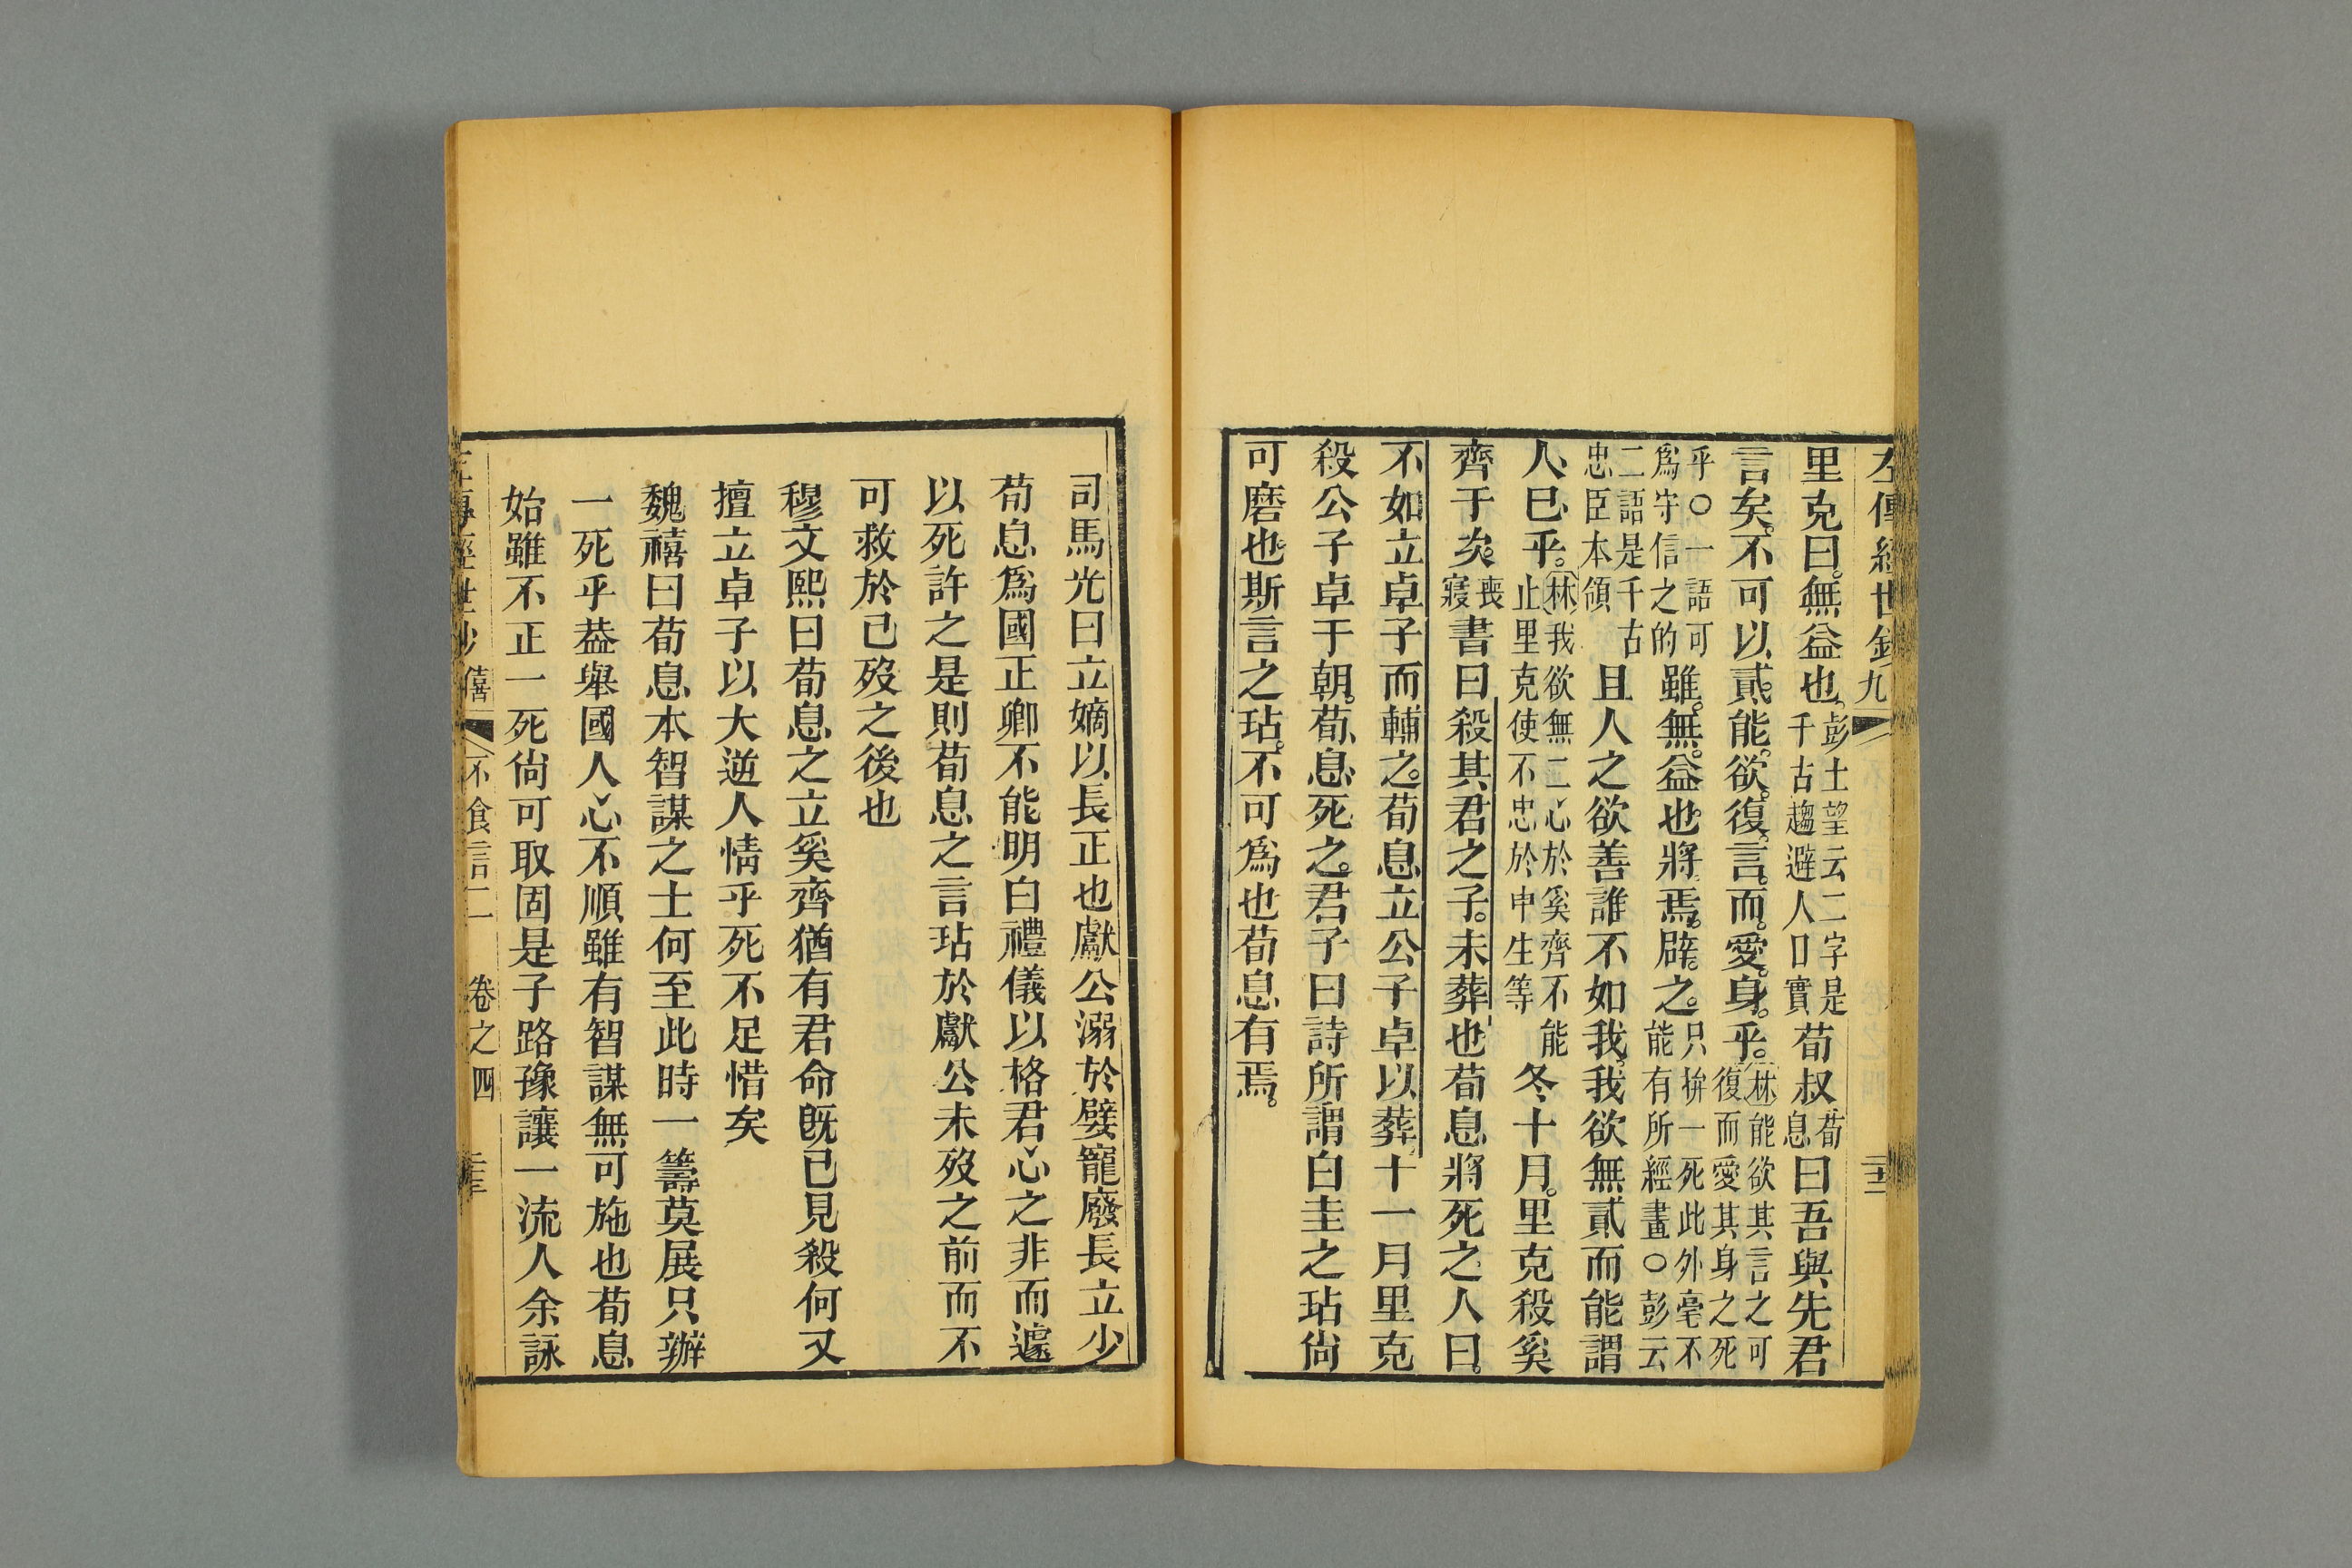 左傳經世鈔 九
里克曰。無益也。彭士望云二字是千古趨避人口實荀叔荀息曰吾與先君
言矣。不可以貳。能欲復言。而愛身乎。林能欲其言之可復而愛其身之死
乎○一語可爲守信之的雖無益也。將焉辟之。只拚一死此外毫不能有所經畫○彭云
二語是千古忠臣本領且人之欲善誰不如我。我欲無貳而能謂
人巳乎。林我欲無二心於奚齊不能止里克使不忠於申生等冬十月。里克殺奚
齊于次。喪寢書曰殺其君之子。未葬也荀息將死之人曰。
不如立卓子而輔之。荀息立公子卓以葬。十一月里克
殺公子卓于朝。荀息死之。君子曰詩所謂白圭之玷尙
可磨也。斯言之玷。不可爲也荀息有焉。
司馬光曰立嫡以長正也獻公溺於嬖寵廢長立少
荀息爲國正卿不能明白禮儀以格君心之非而遽
以死許之是則荀息之言玷於獻公未歿之前而不
可救於已歿之後也
穆文熙曰荀息之立奚齊猶有君命既已見殺何又
擅立卓子以大逆人情乎死不足惜矣
魏禧曰荀息本智謀之士何至此時一籌莫展只辦
一死乎葢舉國人心不順雖有智謀無可施也荀息
始雖不正一死尙可取固是子路豫讓一流人余詠
左傳經世鈔 僖 不食言二 卷之四